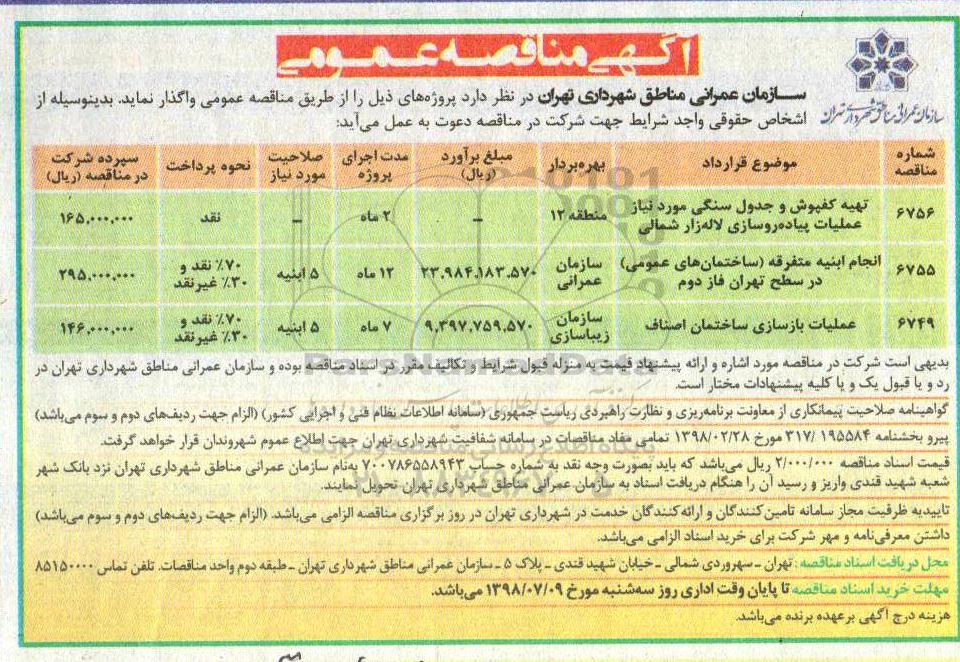 آگهی مناقصه عمومی
سازمان عمرانی مناطق شهرداری تهران
سازمان عمرانی مناطق شهرداری تهران در نظر دارد پروژه‌های ذیل را از طریق مناقصه عمومی واگذار نماید. بدینوسیله از
اشخاص حقوقی واجد شرایط جهت شرکت در مناقصه دعوت به عمل می‌آید:
شماره مناقصه موضوع قرارداد بهره‌بردار مبلغ برآورد (ریال) مدت اجرای پروژه صلاحیت مورد نیاز نحوه پرداخت سپرده شرکت در مناقصه (ریال)
۶۷۵۶ تهیه کفپوش و جدول سنگی مورد نیاز عملیات پیاده‌روسازی لاله‌زار شمالی منطقه ۱۲ – ۲ ماه – نقد ۱۶۵,۰۰۰,۰۰۰
۶۷۵۵ انجام ابنیه متفرقه (ساختمان‌های عمومی) در سطح تهران فاز دوم سازمان عمرانی ۲۳,۹۸۴,۱۸۳,۵۷۰ ۱۲ ماه ۵ ابنیه ۷۰٪ نقد و ۳۰٪ غیرنقد ۲۹۵,۰۰۰,۰۰۰
۶۷۴۹ عملیات بازسازی ساختمان اصناف سازمان زیباسازی ۹,۳۹۷,۷۵۹,۵۷۰ ۷ ماه ۵ ابنیه ۷۰٪ نقد و ۳۰٪ غیرنقد ۱۴۶,۰۰۰,۰۰۰
بدیهی است شرکت در مناقصه مورد اشاره و ارائه پیشنهاد قیمت به منزله قبول شرایط و تکالیف مقرر در اسناد مناقصه بوده و سازمان عمرانی مناطق شهرداری تهران در
رد و یا قبول یک و یا کلیه پیشنهادات مختار است.
گواهینامه صلاحیت پیمانکاری از معاونت برنامه‌ریزی و نظارت راهبردی ریاست جمهوری (سامانه اطلاعات نظام فنی و اجرایی کشور) (الزام جهت ردیف‌های دوم و سوم می‌باشد)
پیرو بخشنامه ۱۹۵۵۸۴ /۳۱۷ مورخ ۱۳۹۸/۰۲/۲۸ تمامی مفاد مناقصات در سامانه شفافیت شهرداری تهران جهت اطلاع عموم شهروندان قرار خواهد گرفت.
قیمت اسناد مناقصه ۲/۰۰۰/۰۰۰ ریال می‌باشد که باید بصورت وجه نقد به شماره حساب ۷۰۰۷۸۶۵۵۸۹۴۳ به‌نام سازمان عمرانی مناطق شهرداری تهران نزد بانک شهر
شعبه شهید قندی واریز و رسید آن را هنگام دریافت اسناد به سازمان عمرانی مناطق شهرداری تهران تحویل نمایند.
تاییدیه ظرفیت مجاز سامانه تامین‌کنندگان و ارائه‌کنندگان خدمت در شهرداری تهران در روز برگزاری مناقصه الزامی می‌باشد. (الزام جهت ردیف‌های دوم و سوم می‌باشد)
داشتن معرفی‌نامه و مهر شرکت برای خرید اسناد الزامی می‌باشد.
محل دریافت اسناد مناقصه: تهران – سهروردی شمالی – خیابان شهید قندی – پلاک ۵ – سازمان عمرانی مناطق شهرداری تهران – طبقه دوم واحد مناقصات. تلفن تماس ۸۵۱۵۰۰۰۰
مهلت خرید اسناد مناقصه تا پایان وقت اداری روز سه‌شنبه مورخ ۱۳۹۸/۰۷/۰۹ می‌باشد.
هزینه درج آگهی برعهده برنده می‌باشد.